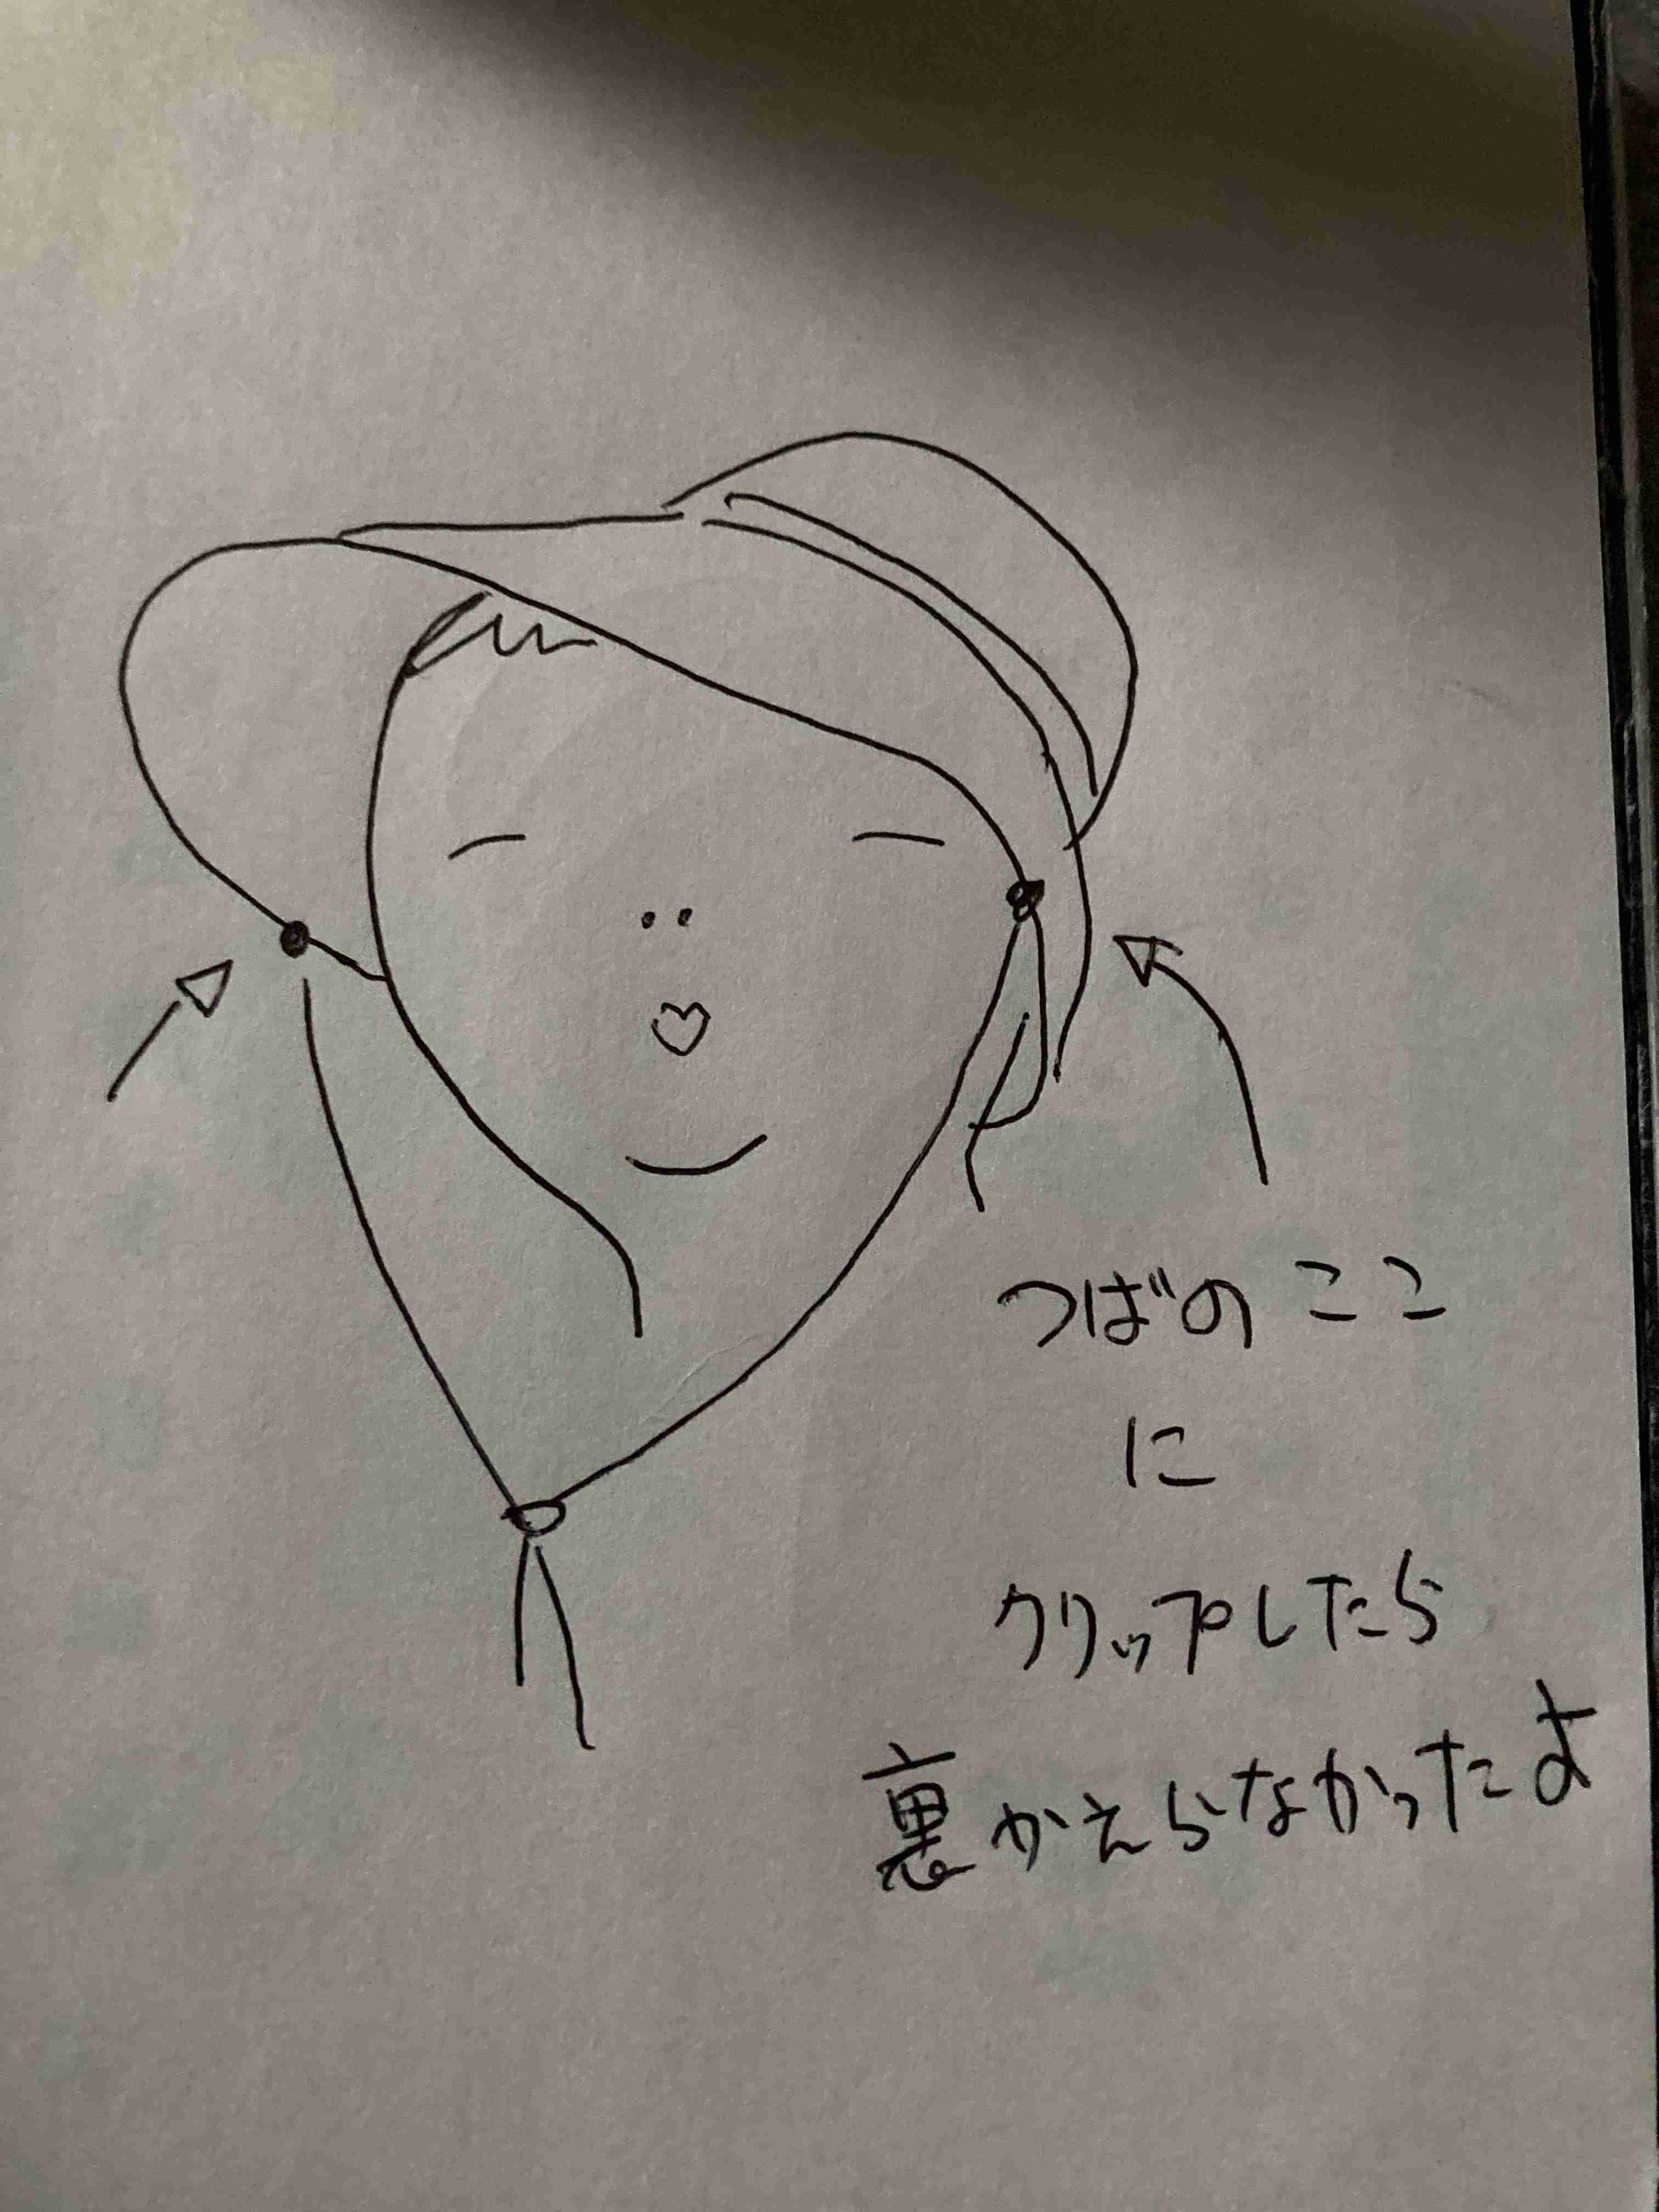 つばのここ
に
クリップしたら
裏がえらなかったよ